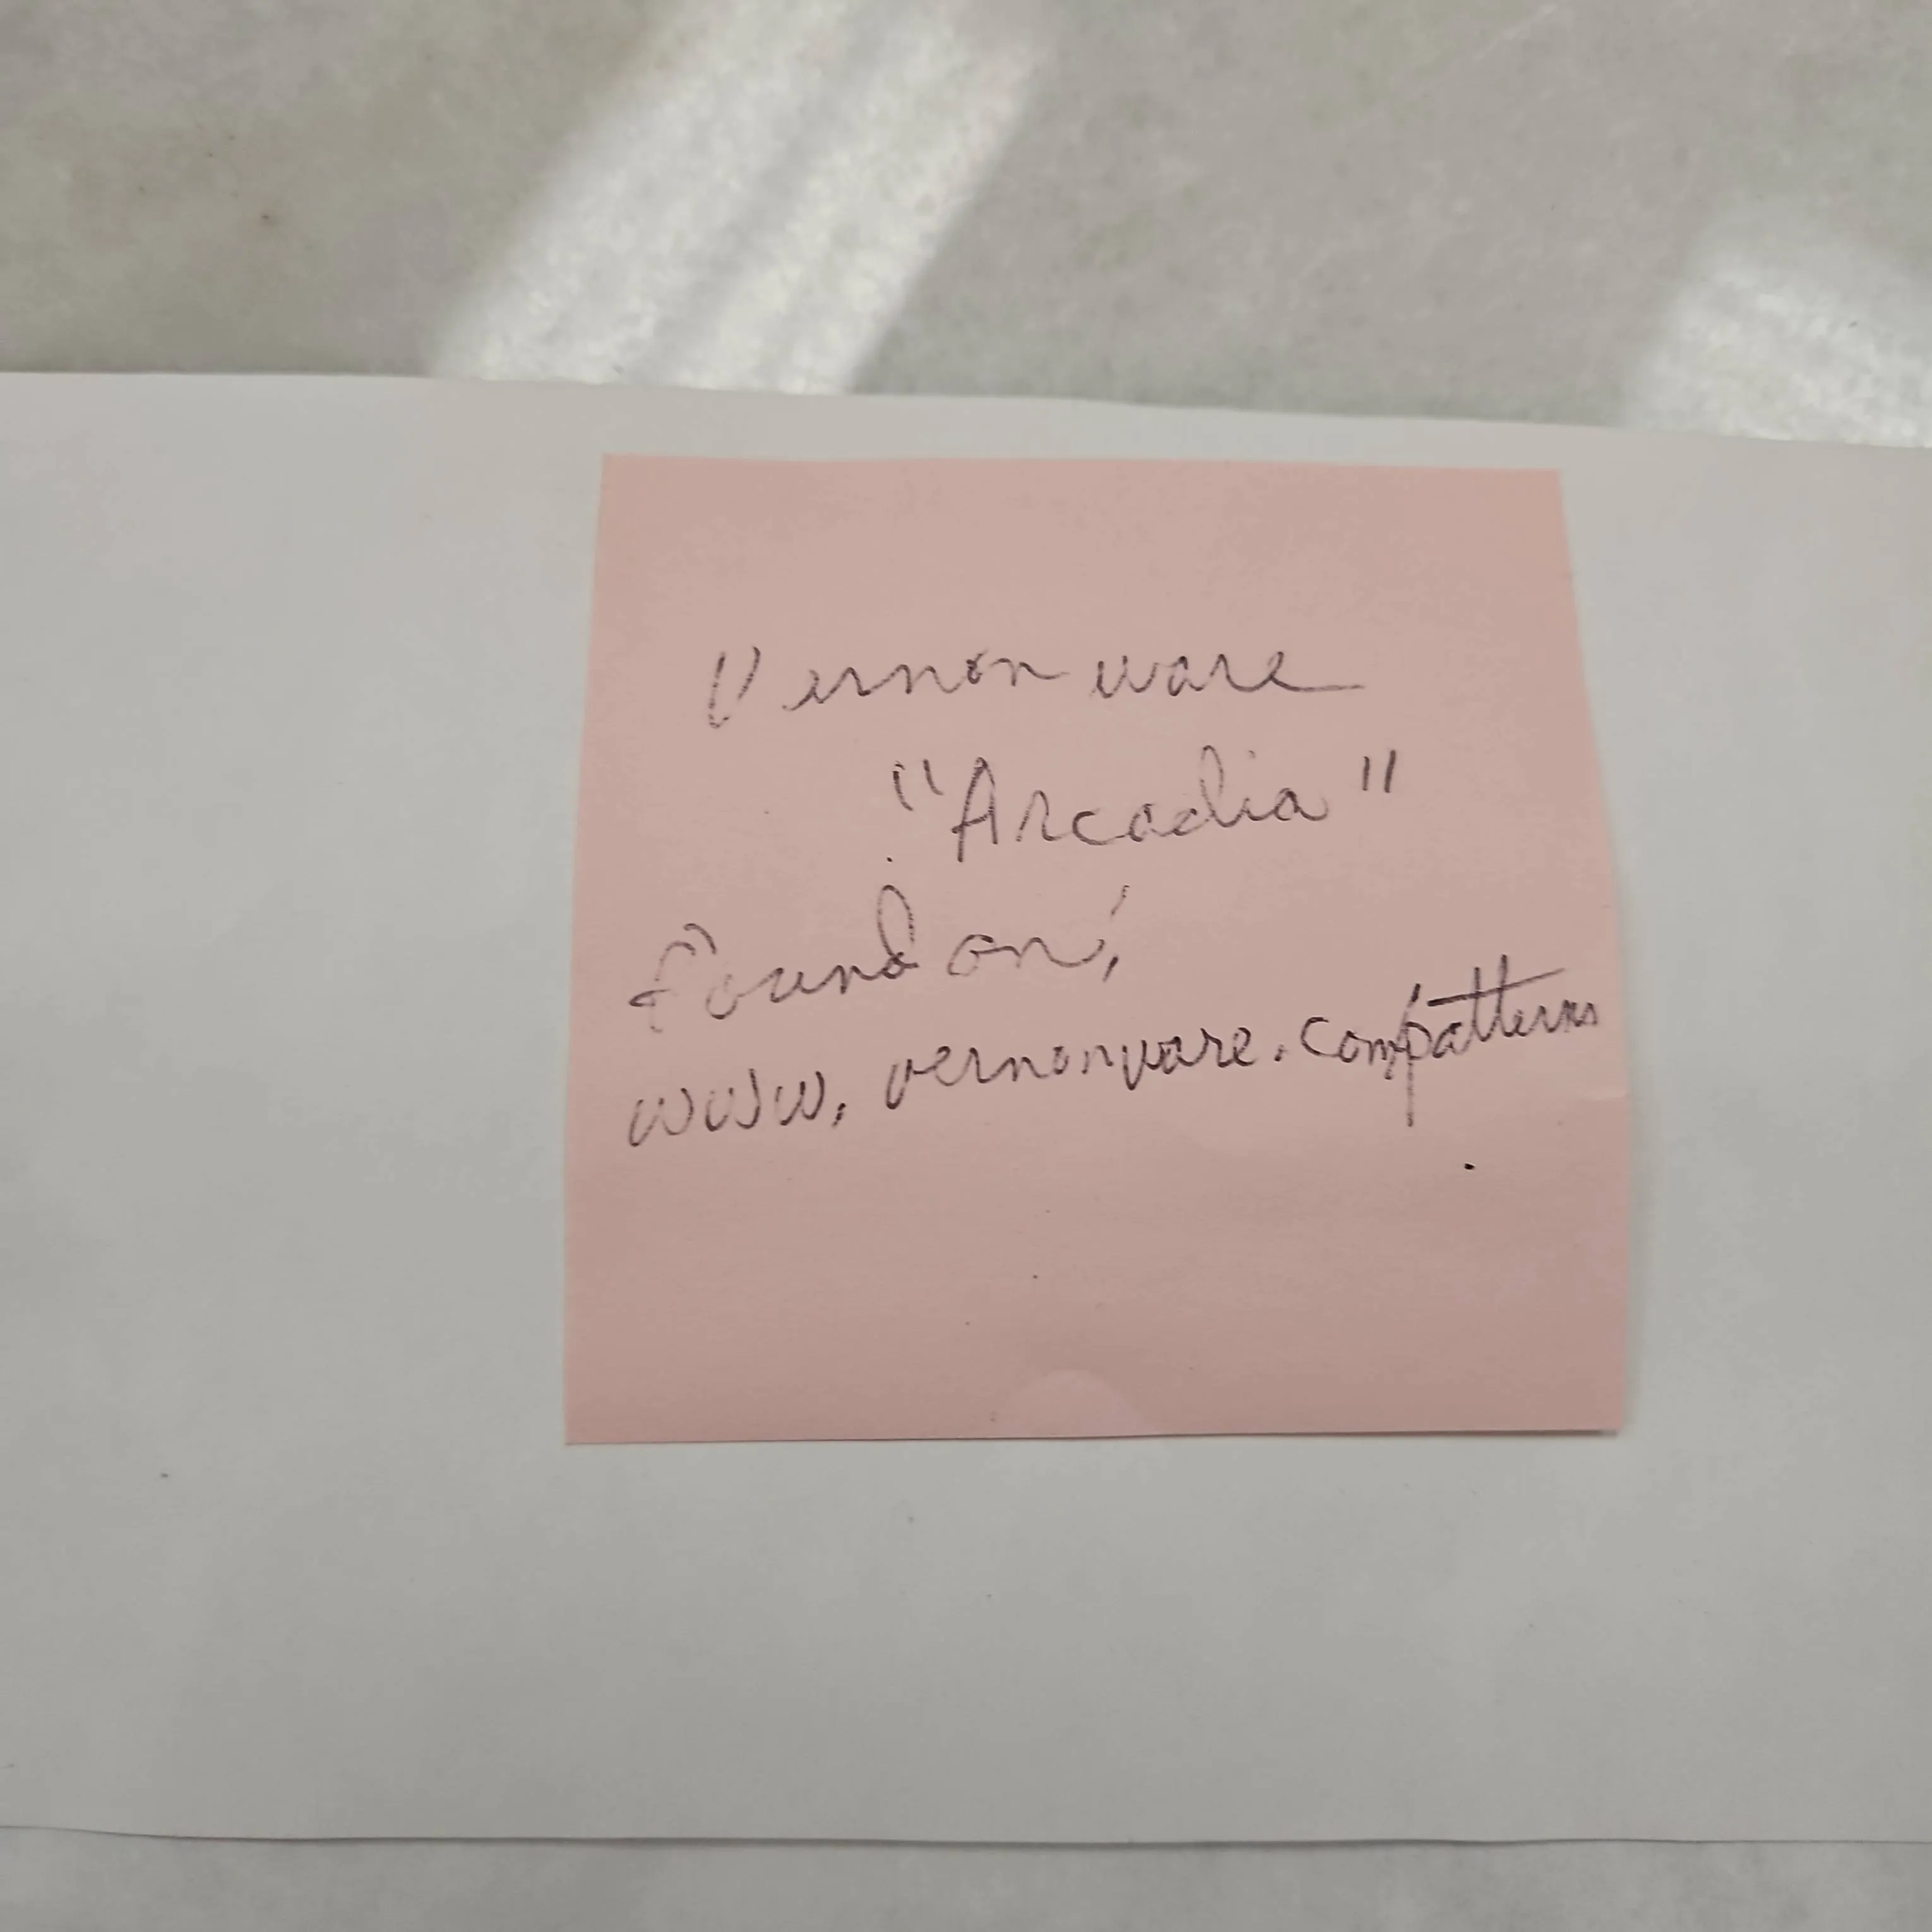 Vernon ware
"Arcadia"
Found on:
www. vernonware.compatterns